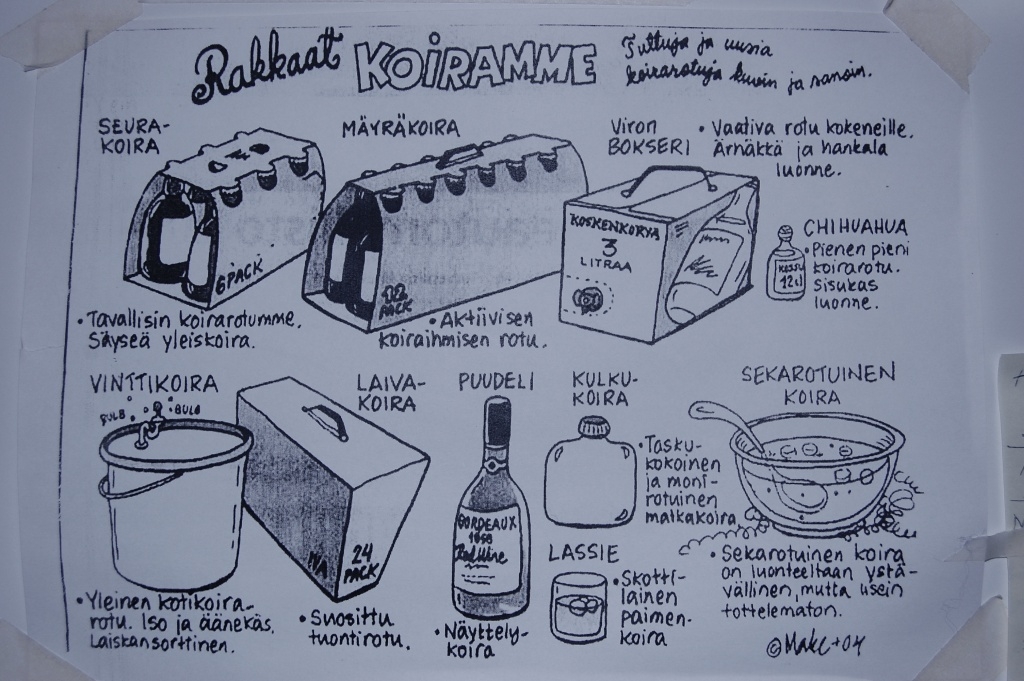 Rakkaat KOIRAMME
Tuttuja ja uusia
koirarotuja kuvin ja sanoin.
SEURA-
KOIRA
6 PACK
• Tavallisin koirarotumme.
Säyseä yleiskoira.
MÄYRÄKOIRA
12 PACK
• Aktiivisen
koiraihmisen rotu.
Viron
BOKSERI
• Vaativa rotu kokeneille.
Ärhäkkä ja hankala
luonne.
KOSKENKORVA
3
LITRAA
CHIHUAHUA
• Pienen pieni
koirarotu.
Sisukas
luonne.
KOSSU
12cl
VINTTIKOIRA
BULB BULB
• Yleinen kotikoira-
rotu. Iso ja äänekäs.
Laiskansorttinen.
LAIVA-
KOIRA
24
PACK
• Suosittu
tuontirotu.
PUUDELI
BORDEAUX
Red Wine
• Näyttely-
koira
KULKU-
KOIRA
• Tasku-
kokoinen
ja moni-
rotuinen
matkakoira
LASSIE
• Skotti-
lainen
paimen-
koira
SEKAROTUINEN
KOIRA
• Sekarotuinen koira
on luonteeltaan ystä-
vällinen, mutta usein
tottelematon.